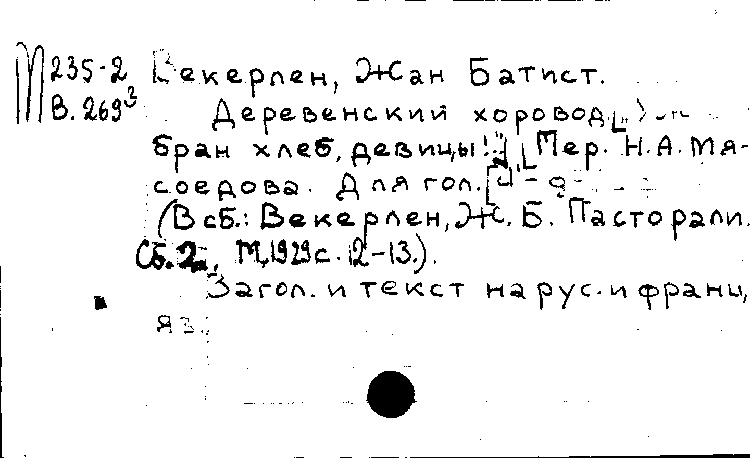 М 235-2 Векерлен, Жан Батист.
В. 269³ Деревенский хоровод.
бран хлеб, девицы! Пер. Н.А. Мя-
соедова. Для гол.
(В сб.: Векерлен, Ж. Б. Пасторали.
Сб. 2, М, 1929 с. 12-13.).
Загол. и текст на рус. и франц,
яз.